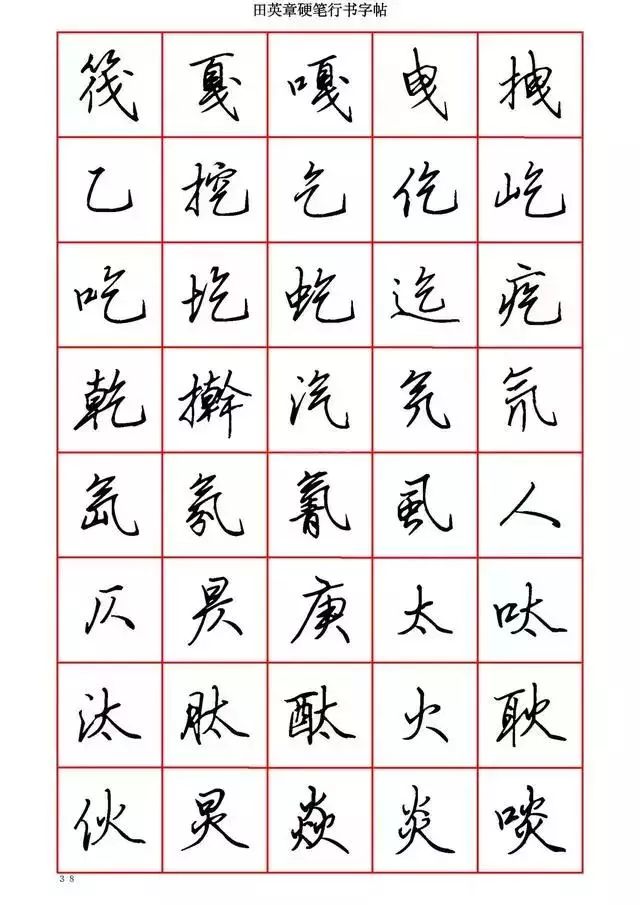 田英章硬笔行书字帖
筏 戛 嘎 曳 拽
乙 挖 乞 仡 屹
吃 圪 虼 迄 疙
乾 擀 汽 氕 氘
氙 氛 氰 虱 人
仄 昃 庚 太 呔
汰 肽 酞 火 耿
伙 炅 焱 炎 啖
38